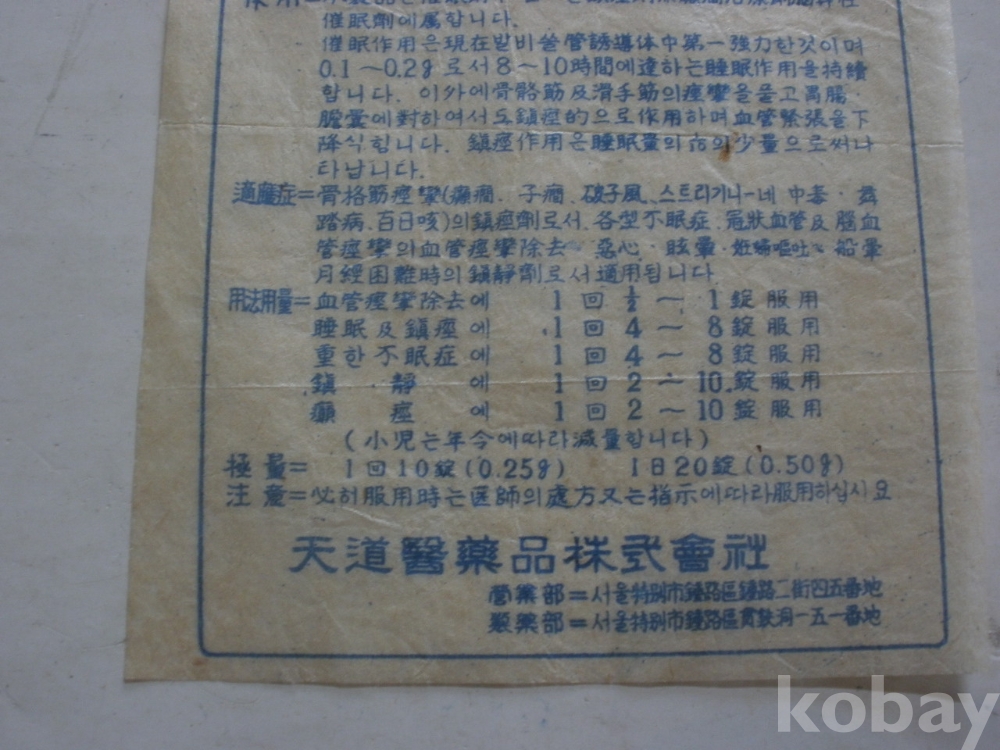 催眠劑에属합니다.
催眠作用은現在발비쓸管誘導体中第一強力한것이며
0.1~0.2g로서8~10時間에達하는睡眠作用을持續
합니다. 이外에骨骼筋及滑手筋의痙攣을풀고胃腸·
膽囊에對하여서도鎮痙的으로作用하며血管緊張을下
降식힙니다. 鎮痙作用은睡眠量의 의少量으로써나
타납니다.
適應症=骨格筋痙攣(癲癇、子癇、破子風、스트리기니-네 中毒·舞
踏病、百日咳)의鎮痙劑로서、各型不眠症、冠狀血管及腦血
管痙攣의血管痙攣除去· 惡心·眩暈·妊婦嘔吐·船暈
月經困難時의鎮靜劑로서適用됩니다
用法用量=血管痙攣除去에 1回½~1錠服用
睡眠及鎮痙에 1回4~8錠服用
重한不眠症에 1回4~8錠服用
鎮·靜에 1回2~10.錠服用
癲痙에 1回2~10錠服用
(小児는年令에따라減量합니다)
極量= 1回10錠(0.25g) 1日20錠(0.50g)
注意=必히服用時는医師의處方又는指示에따라服用하십시요
天道醫藥品株式會社
營業部=서울特別市鍾路區鍾路二街四五番地
製藥部=서울特別市鍾路區貫鉄洞一五一番地
kobay